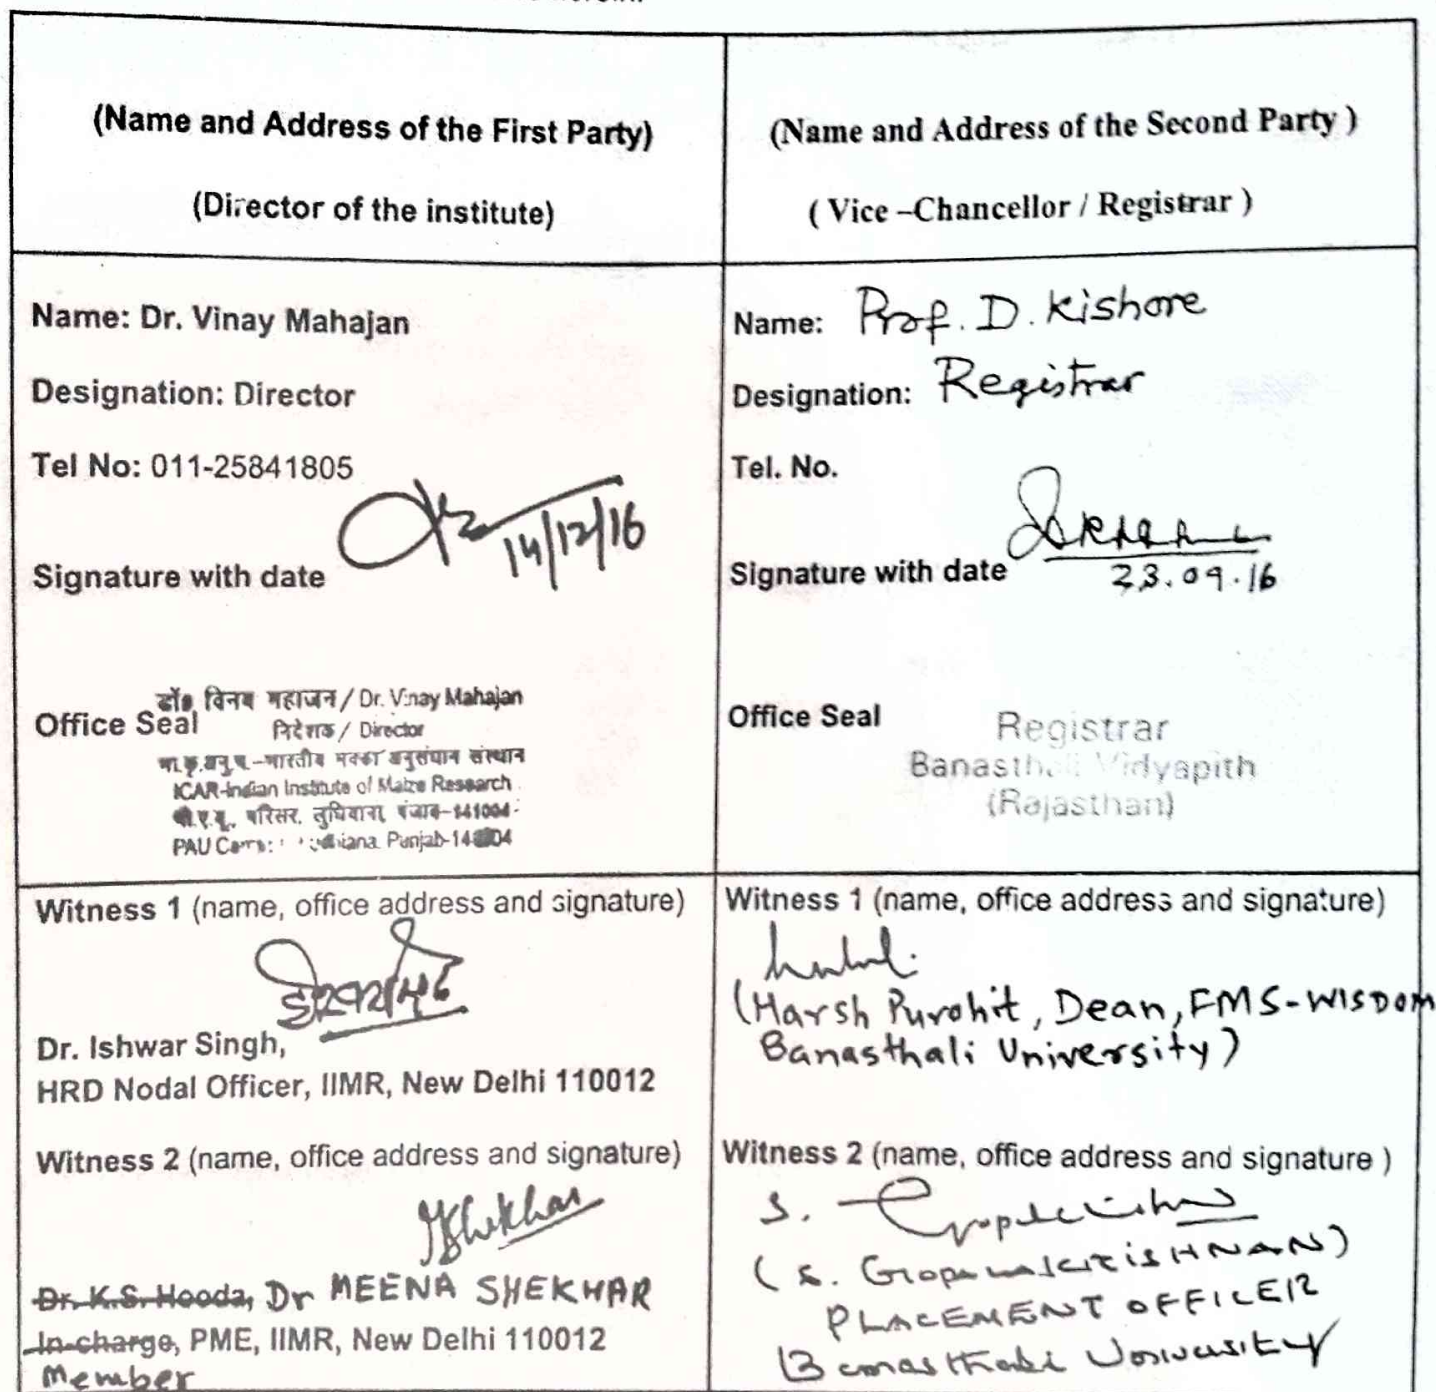 (Name and Address of the First Party)
(Director of the institute)
(Name and Address of the Second Party )
( Vice –Chancellor / Registrar )
Name: Dr. Vinay Mahajan
Designation: Director
Tel No: 011-25841805
14/12/16
Signature with date
डॉ॰ विनय महाजन / Dr. Vinay Mahajan
Office Seal
निदेशक / Director
भा.कृ.अनु.प.-भारतीय मक्का अनुसंधान संस्थान
ICAR-Indian Institute of Maize Research
पी.ए.यू. परिसर, लुधियाना, पंजाब-141004
PAU Punjab-141004
Name: Prof. D. Kishore
Designation: Registrar
Tel. No.
Signature with date
23.09.16
Office Seal
Registrar
Banasthali Vidyapith
(Rajasthan)
Witness 1 (name, office address and signature)
Dr. Ishwar Singh,
HRD Nodal Officer, IIMR, New Delhi 110012
Witness 2 (name, office address and signature)
MShekhar
Dr. K.S. Hooda, Dr MEENA SHEKHAR
In-charge, PME, IIMR, New Delhi 110012
Member
Witness 1 (name, office address and signature)
(Harsh Purohit, Dean, FMS-WISDOM
Banasthali University)
Witness 2 (name, office address and signature )
S. Gopalakrishnan
(S. GopalakRISHNAN)
PLACEMENT OFFICER
Banasthali University